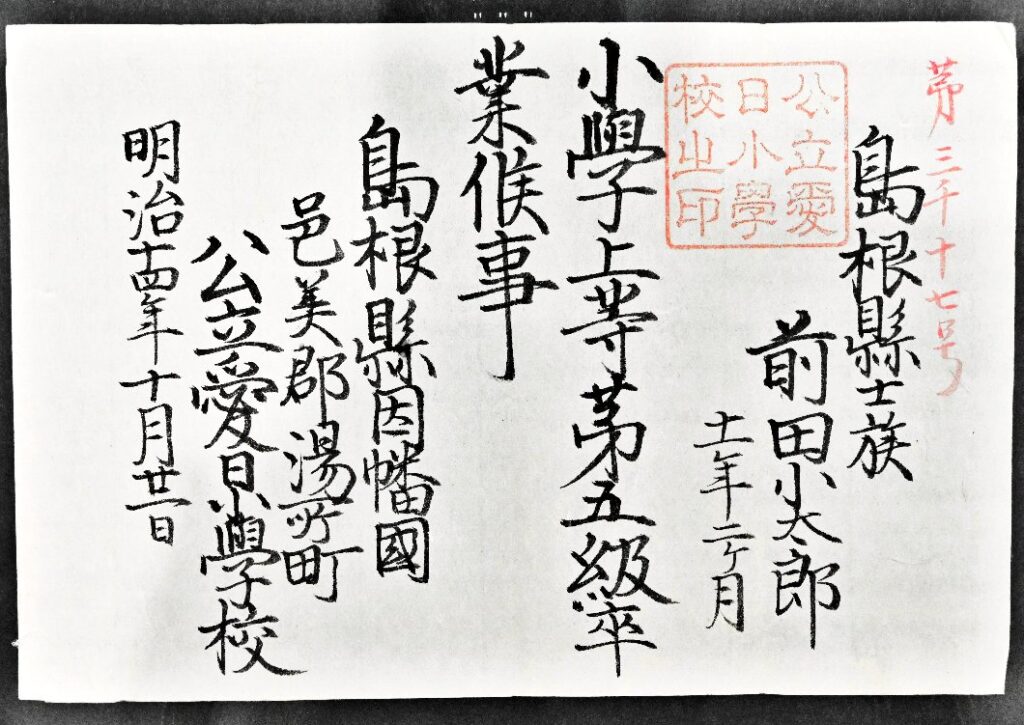 苐三千十七号
島根縣士族
前田小太郎
十一年二ヶ月
公立愛
日小學
校之印
小學上等苐五級卒
業候事
島根縣因幡國
邑美郡湯所町
公立愛日小學校
明治十四年十月廿一日